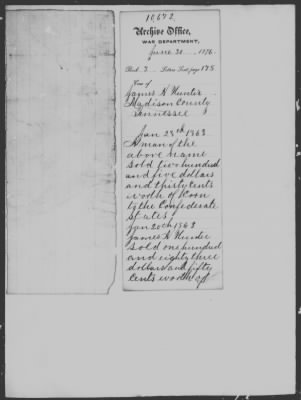 10,672
Archive Office,
WAR DEPARTMENT,
June 30, 1876.
Book 3. Letters Sent, page 175
Case of
James H Hunter
Madison County
Tennessee
Jan 28th 1863
A man of the
above name
sold five hundred
and five dollars
and thirty cents
worth of Corn
to the Confederate
States.
Jan 20th 1863
James H Hunter
sold one hundred
and eighty three
dollars and fifty
cents worth of